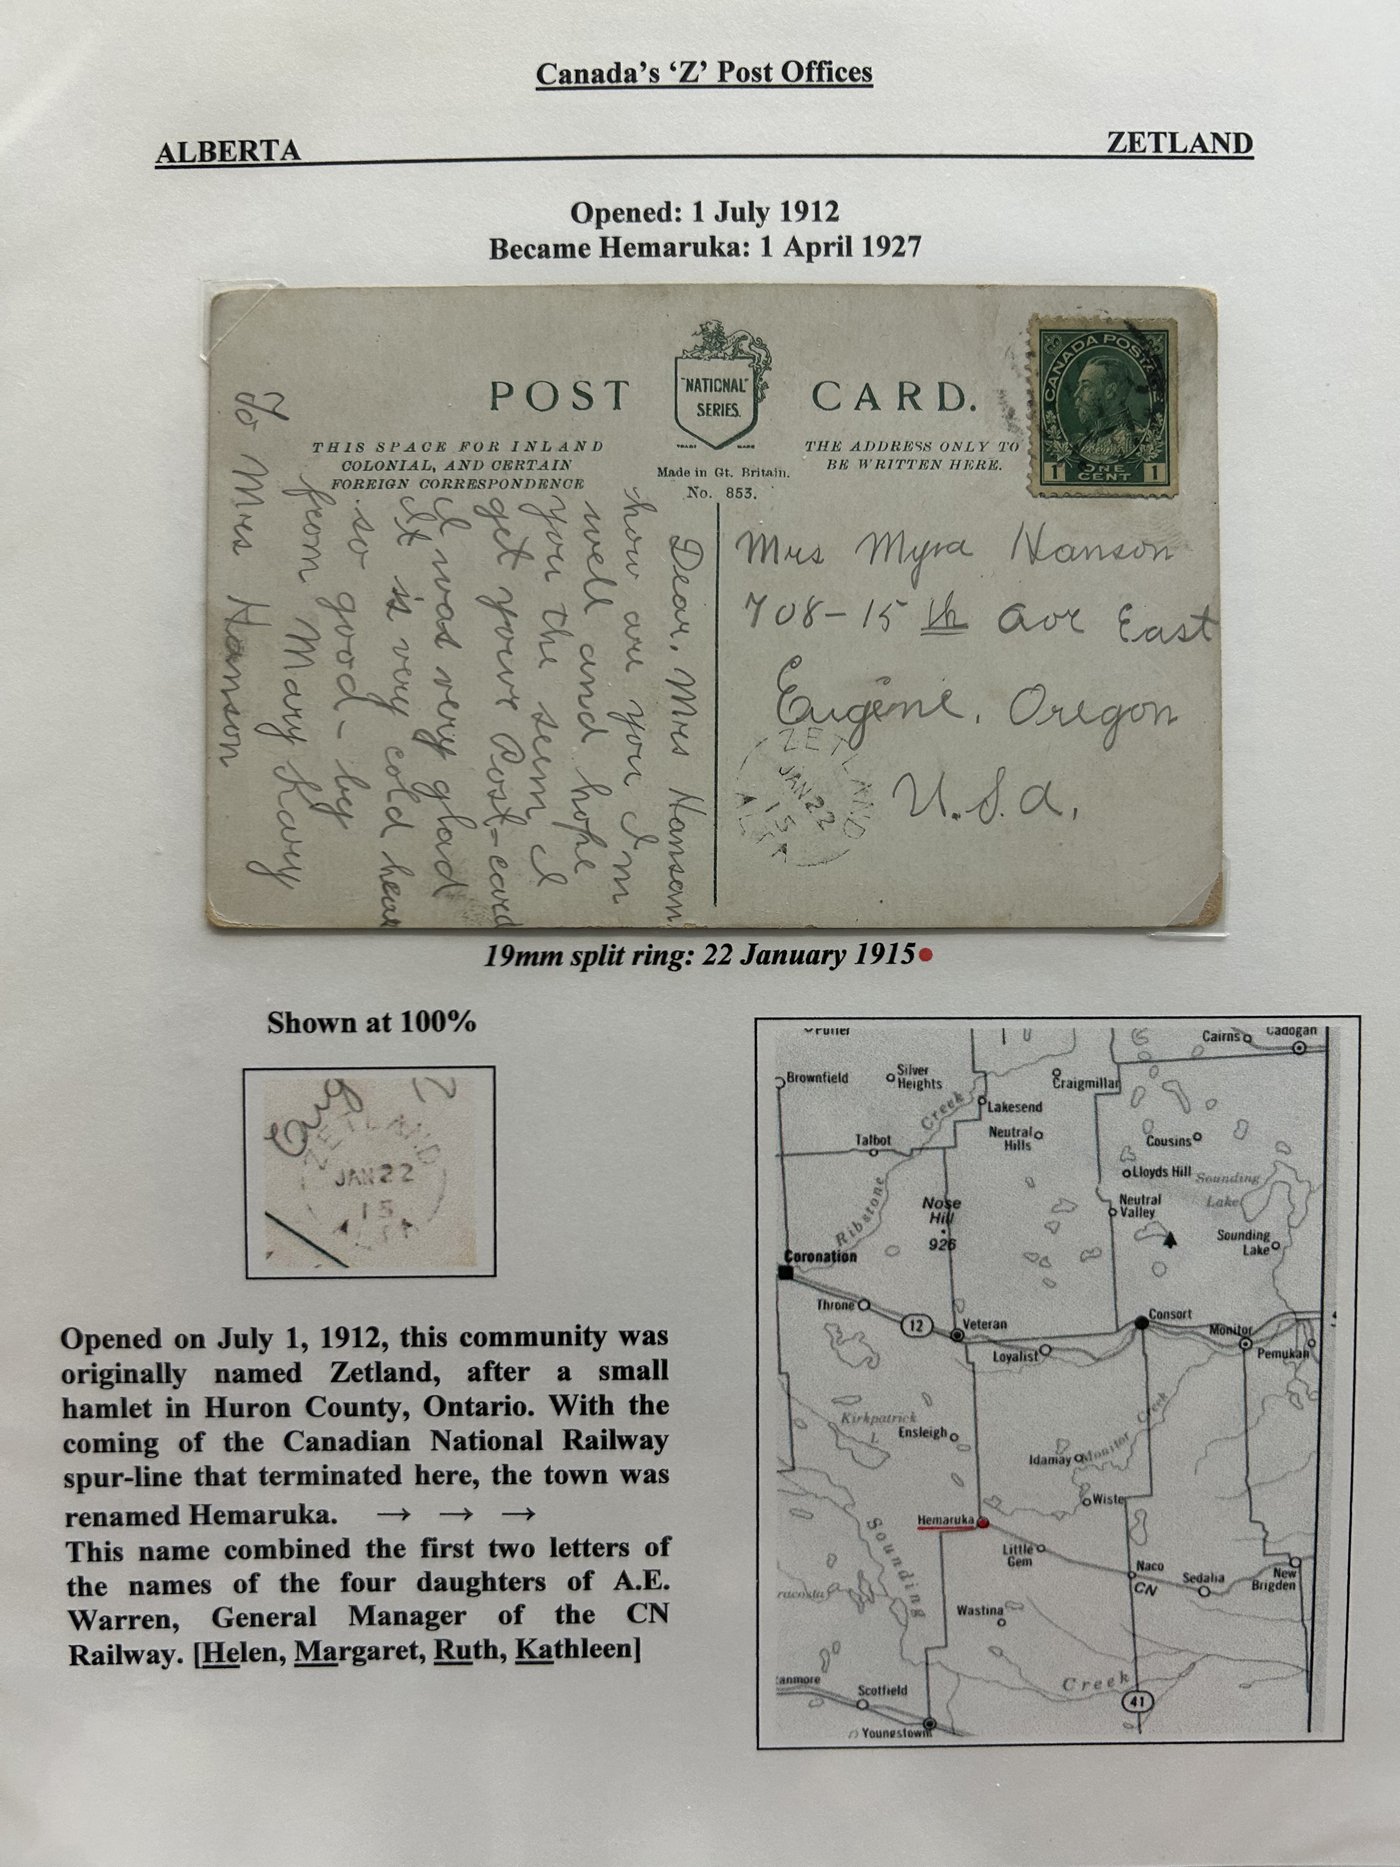 Canada's 'Z' Post Offices
ALBERTA ZETLAND
Opened: 1 July 1912
Became Hemaruka: 1 April 1927
POST CARD.
"NATIONAL"
SERIES.
TRADE MARK
THIS SPACE FOR INLAND
COLONIAL, AND CERTAIN
FOREIGN CORRESPONDENCE
THE ADDRESS ONLY TO
BE WRITTEN HERE.
Made in Gt. Britain.
No. 853.
CANADA POSTAGE
1 ONE CENT 1
Dear, Mrs Hanson
how are you I'm
well and hope
you the seem I
get your Post-card
I was very glad
It is very cold hear
so good-by
from Mary
To Mrs Hanson
Mrs Myra Hanson
708-15 th Ave East
Eugene, Oregon
U.S.A,
ZETLAND
JAN 22
15
ALTA
19mm split ring: 22 January 1915
Shown at 100%
ZETLAND
JAN 22
15
ALTA
Opened on July 1, 1912, this community was
originally named Zetland, after a small
hamlet in Huron County, Ontario. With the
coming of the Canadian National Railway
spur-line that terminated here, the town was
renamed Hemaruka. → → →
This name combined the first two letters of
the names of the four daughters of A.E.
Warren, General Manager of the CN
Railway. [Helen, Margaret, Ruth, Kathleen]
Cairns
Cadogan
Brownfield
Silver
Heights
Craigmillar
Creek
Lakesend
Neutral
Hills
Talbot
Cousins
Lloyds Hill
Sounding
Lake
Ribstone
Nose
Hill
926
Neutral
Valley
Sounding
Lake
Coronation
Throne
12
Veteran
Consort
Loyalist
Monitor
Pemukan
Kirkpatrick
L.
Ensleigh
Idamay
Monitor
Creek
Wiste
Hemaruka
Sounding
Little
Gem
Naco
CN
Sedalia
New
Brigden
Wastina
Creek
41
Scotfield
Youngstown